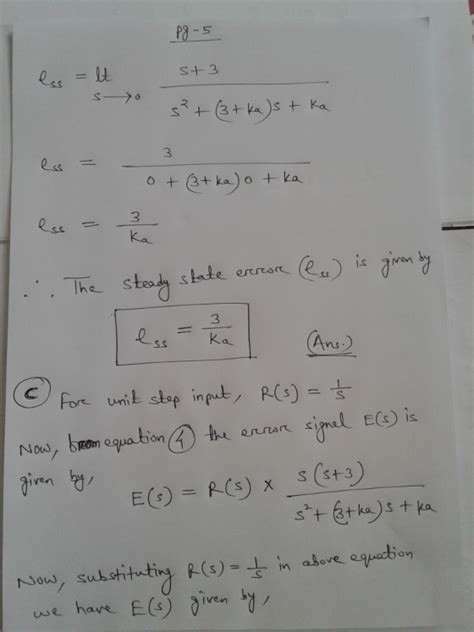 Pg-5
ess = lt s→0 s+3 / s² + (3+ka)s + ka
ess = 3 / 0 + (3+ka)0 + ka
ess = 3/ka
∴ The steady state error (ess) is given by
ess = 3/ka (Ans.)
(C) For unit step input, R(s) = 1/s
Now, equation (4) the error signal E(s) is
given by,
E(s) = R(s) × s(s+3) / s² + (3+ka)s + ka
Now, substituting R(s) = 1/s in above equation
we have E(s) given by,